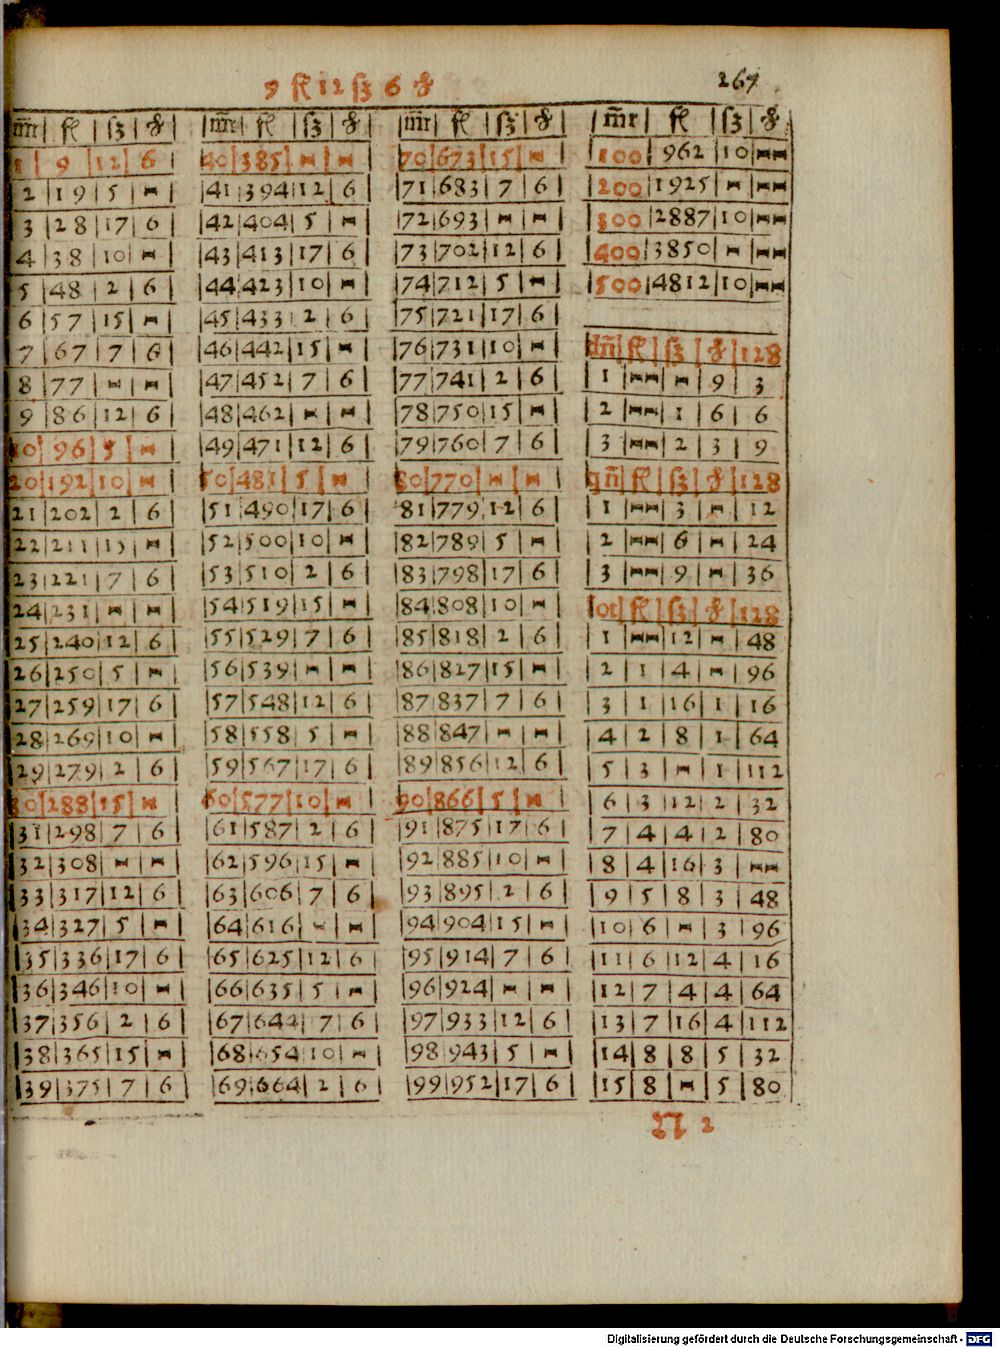 9 fl 12 ſʒ 6 ₰
267
m̅r | fl | ſʒ | ₰ | m̅r | fl | ſʒ | ₰ | m̅r | fl | ſʒ | ₰ | m̅r | fl | ſʒ | ₰
1 | 9 | 12 | 6 | 40 | 385 | ⑁ | ⑁ | 70 | 673 | 15 | ⑁ | 100 | 962 | 10 | ⑁⑁
2 | 19 | 5 | ⑁ | 41 | 394 | 12 | 6 | 71 | 683 | 7 | 6 | 200 | 1925 | ⑁ | ⑁⑁
3 | 28 | 17 | 6 | 42 | 404 | 5 | ⑁ | 72 | 693 | ⑁ | ⑁ | 300 | 2887 | 10 | ⑁⑁
4 | 38 | 10 | ⑁ | 43 | 413 | 17 | 6 | 73 | 702 | 12 | 6 | 400 | 3850 | ⑁ | ⑁⑁
5 | 48 | 2 | 6 | 44 | 423 | 10 | ⑁ | 74 | 712 | 5 | ⑁ | 500 | 4812 | 10 | ⑁⑁
6 | 57 | 15 | ⑁ | 45 | 433 | 2 | 6 | 75 | 721 | 17 | 6
7 | 67 | 7 | 6 | 46 | 442 | 15 | ⑁ | 76 | 731 | 10 | ⑁ | dn̅ | fl | ſʒ | ₰ | 128
8 | 77 | ⑁ | ⑁ | 47 | 452 | 7 | 6 | 77 | 741 | 2 | 6 | 1 | ⑁⑁ | ⑁ | 9 | 3
9 | 86 | 12 | 6 | 48 | 462 | ⑁ | ⑁ | 78 | 750 | 15 | ⑁ | 2 | ⑁⑁ | 1 | 6 | 6
10 | 96 | 5 | ⑁ | 49 | 471 | 12 | 6 | 79 | 760 | 7 | 6 | 3 | ⑁⑁ | 2 | 3 | 9
20 | 192 | 10 | ⑁ | 50 | 481 | 5 | ⑁ | 80 | 770 | ⑁ | ⑁ | qn̅ | fl | ſʒ | ₰ | 128
21 | 202 | 2 | 6 | 51 | 490 | 17 | 6 | 81 | 779 | 12 | 6 | 1 | ⑁⑁ | 3 | ⑁ | 12
22 | 211 | 15 | ⑁ | 52 | 500 | 10 | ⑁ | 82 | 789 | 5 | ⑁ | 2 | ⑁⑁ | 6 | ⑁ | 24
23 | 221 | 7 | 6 | 53 | 510 | 2 | 6 | 83 | 798 | 17 | 6 | 3 | ⑁⑁ | 9 | ⑁ | 36
24 | 231 | ⑁ | ⑁ | 54 | 519 | 15 | ⑁ | 84 | 808 | 10 | ⑁ | lot | fl | ſʒ | ₰ | 128
25 | 240 | 12 | 6 | 55 | 529 | 7 | 6 | 85 | 818 | 2 | 6 | 1 | ⑁⑁ | 12 | ⑁ | 48
26 | 250 | 5 | ⑁ | 56 | 539 | ⑁ | ⑁ | 86 | 827 | 15 | ⑁ | 2 | 1 | 4 | ⑁ | 96
27 | 259 | 17 | 6 | 57 | 548 | 12 | 6 | 87 | 837 | 7 | 6 | 3 | 1 | 16 | 1 | 16
28 | 269 | 10 | ⑁ | 58 | 558 | 5 | ⑁ | 88 | 847 | ⑁ | ⑁ | 4 | 2 | 8 | 1 | 64
29 | 279 | 2 | 6 | 59 | 567 | 17 | 6 | 89 | 856 | 12 | 6 | 5 | 3 | ⑁ | 1 | 112
30 | 288 | 15 | ⑁ | 60 | 577 | 10 | ⑁ | 90 | 866 | 5 | ⑁ | 6 | 3 | 12 | 2 | 32
31 | 298 | 7 | 6 | 61 | 587 | 2 | 6 | 91 | 875 | 17 | 6 | 7 | 4 | 4 | 2 | 80
32 | 308 | ⑁ | ⑁ | 62 | 596 | 15 | ⑁ | 92 | 885 | 10 | ⑁ | 8 | 4 | 16 | 3 | ⑁⑁
33 | 317 | 12 | 6 | 63 | 606 | 7 | 6 | 93 | 895 | 2 | 6 | 9 | 5 | 8 | 3 | 48
34 | 327 | 5 | ⑁ | 64 | 616 | ⑁ | ⑁ | 94 | 904 | 15 | ⑁ | 10 | 6 | ⑁ | 3 | 96
35 | 336 | 17 | 6 | 65 | 625 | 12 | 6 | 95 | 914 | 7 | 6 | 11 | 6 | 12 | 4 | 16
36 | 346 | 10 | ⑁ | 66 | 635 | 5 | ⑁ | 96 | 924 | ⑁ | ⑁ | 12 | 7 | 4 | 4 | 64
37 | 356 | 2 | 6 | 67 | 644 | 7 | 6 | 97 | 933 | 12 | 6 | 13 | 7 | 16 | 4 | 112
38 | 365 | 15 | ⑁ | 68 | 654 | 10 | ⑁ | 98 | 943 | 5 | ⑁ | 14 | 8 | 8 | 5 | 32
39 | 375 | 7 | 6 | 69 | 664 | 2 | 6 | 99 | 952 | 17 | 6 | 15 | 8 | ⑁ | 5 | 80
2
Digitalisierung gefördert durch die Deutsche Forschungsgemeinschaft - DFG